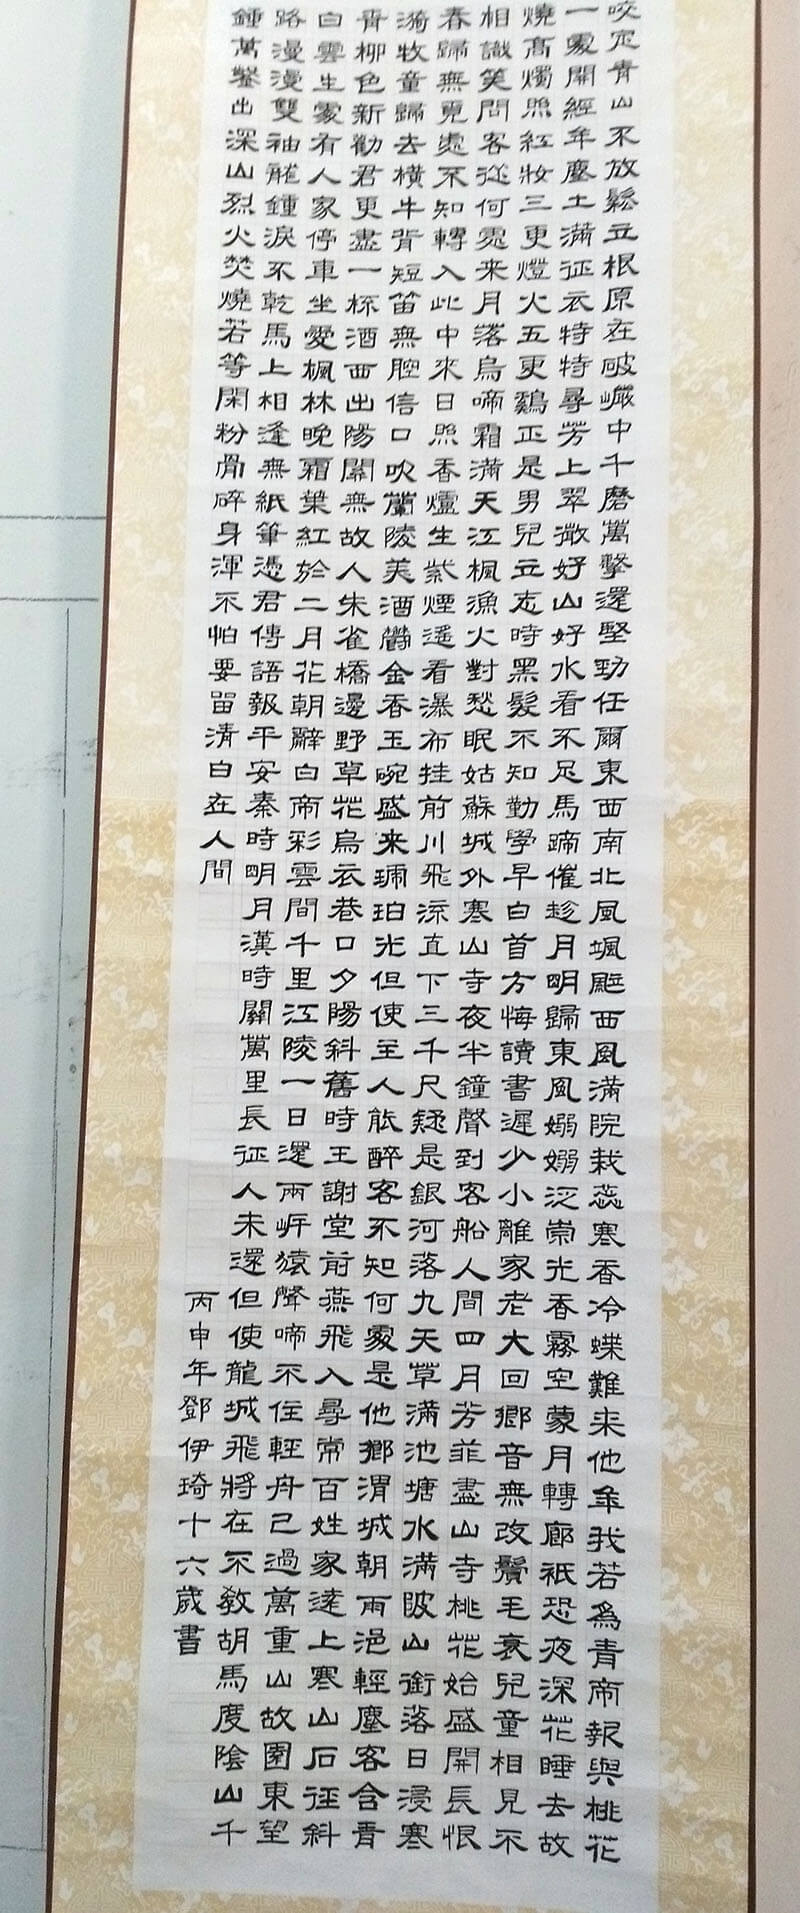 咬定青山不放鬆立根原在破巖中千磨萬擊還堅勁任爾東西南北風颯颯西風滿院栽蕊寒香冷蝶難来他年我若為青帝報與桃花
一處開經年塵土滿征衣特特尋芳上翠微好山好水看不足馬蹄催趁月明歸東風嫋嫋泛崇光香霧空蒙月轉廊衹恐夜深花睡去故
燒高燭照紅妝三更燈火五更鷄正是男兒立志時黑髮不知勤學早白首方悔讀書遲少小離家老大回鄉音無改鬢毛衰兒童相見不
相識笑問客從何處来月落烏啼霜滿天江楓漁火對愁眠姑蘇城外寒山寺夜半鐘聲到客船人間四月芳菲盡山寺桃花始盛開長恨
春歸無覓處不知轉入此中來日照香爐生紫煙遥看瀑布挂前川飛流直下三千尺疑是銀河落九天草滿池塘水滿陂山銜落日浸寒
漪牧童歸去橫牛背短笛無腔信口吹蘭陵美酒鬱金香玉碗盛来琥珀光但使主人能醉客不知何處是他鄉渭城朝雨浥輕塵客含青
青柳色新勸君更盡一杯酒西出陽關無故人朱雀橋邊野草花烏衣巷口夕陽斜舊時王謝堂前燕飛入尋常百姓家遠上寒山石徑斜
白雲生處有人家停車坐愛楓林晚霜葉紅於二月花朝辭白帝彩雲間千里江陵一日還兩岸猿聲啼不住輕舟已過萬重山故園東望
路漫漫雙袖龍鍾淚不乾馬上相逢無紙筆憑君傳語報平安秦時明月漢時關萬里長征人未還但使龍城飛將在不教胡馬度陰山千
鍾萬鑿出深山烈火焚燒若等閑粉骨碎身渾不怕要留清白在人間
丙申年鄧伊琦十六歲書